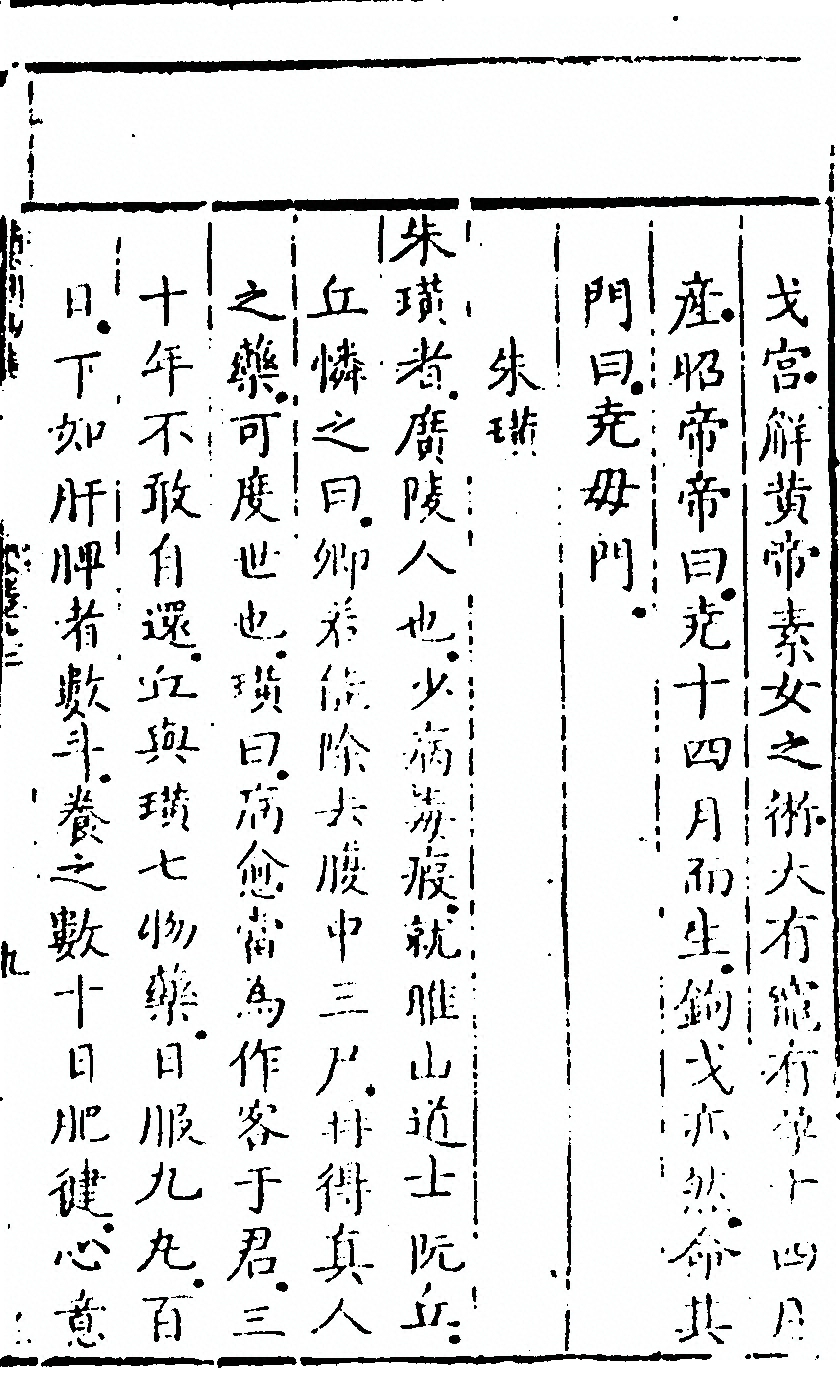 戈宮解黃帝素女之術大有寵有孕十四月
產昭帝帝曰堯十四月而生鉤戈亦然命其
門曰堯母門
朱璜
朱璜者廣陵人也少病毒瘕就睢山道士阮丘
丘憐之曰卿若能除去腹中三尸有得真人
之藥可度世也璜曰病愈當為作客于君三
十年不敢自還丘與璜七物藥日服九丸百
日下如肝脾者數斗養之數十日肥健心意
九